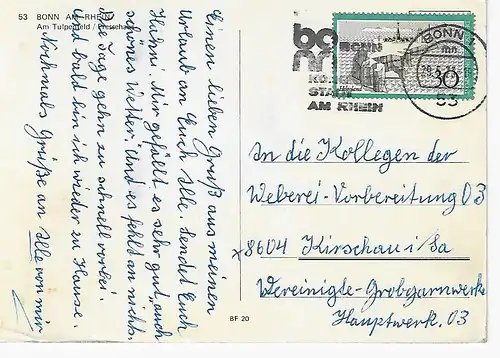 53 BONN AM RHEIN
Am Tulpenfeld / Pressehaus
Einen lieben Gruß aus meinen
Urlaub an Euch Alle. Sendet Euch
Heidni. Mir gefällt es sehr gut, auch
schönes Wetter. Und es fehlt an nichts.
Die Tage gehn zu schnell vorbei.
Und bald bin ich wieder zu Hause.
Nochmals Grüße an Alle von mir
BF 20
BONN
STADT
AM RHEIN
BONN 1
mn
30
53
An die Kollegen der
Weberei-Vorbereitung 03
x8604 Kirschau i/Sa
Vereinigte-Grobgarnwerke
Hauptwerk. 03